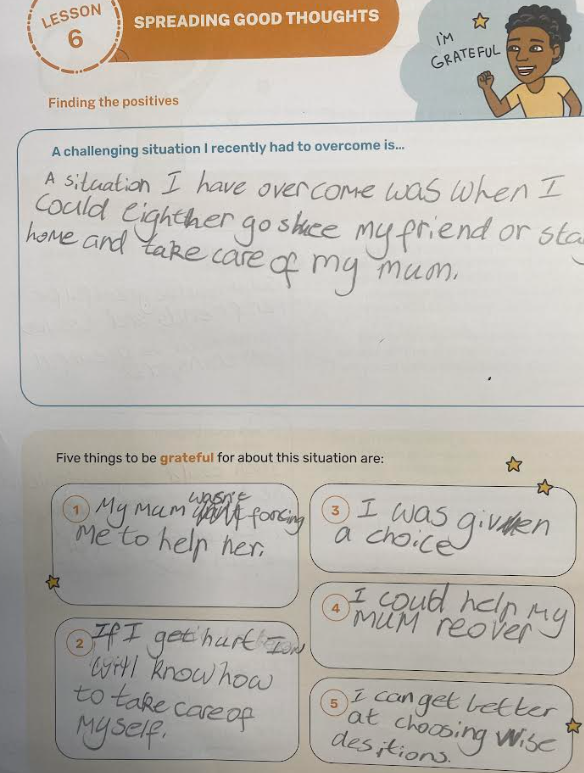 LESSON
6
SPREADING GOOD THOUGHTS
I'M
GRATEFUL
Finding the positives
A challenging situation I recently had to overcome is...
A situation I have overcome was when I
could eighther go see my friend or sta
home and take care of my mum.
Five things to be grateful for about this situation are:
1 My mum wasn't forcing
me to help her.
2 If I get hurt I
will know how
to take care of
myself.
3 I was given
a choice
4 I could help my
mum reover
5 I can get better
at choosing wise
desitions.